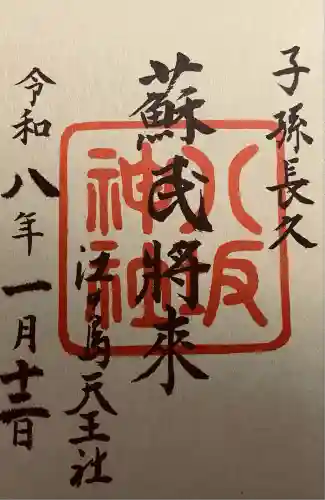 子孫長久
蘇民將來
江の島天王社
令和八年一月十三日
八坂神社